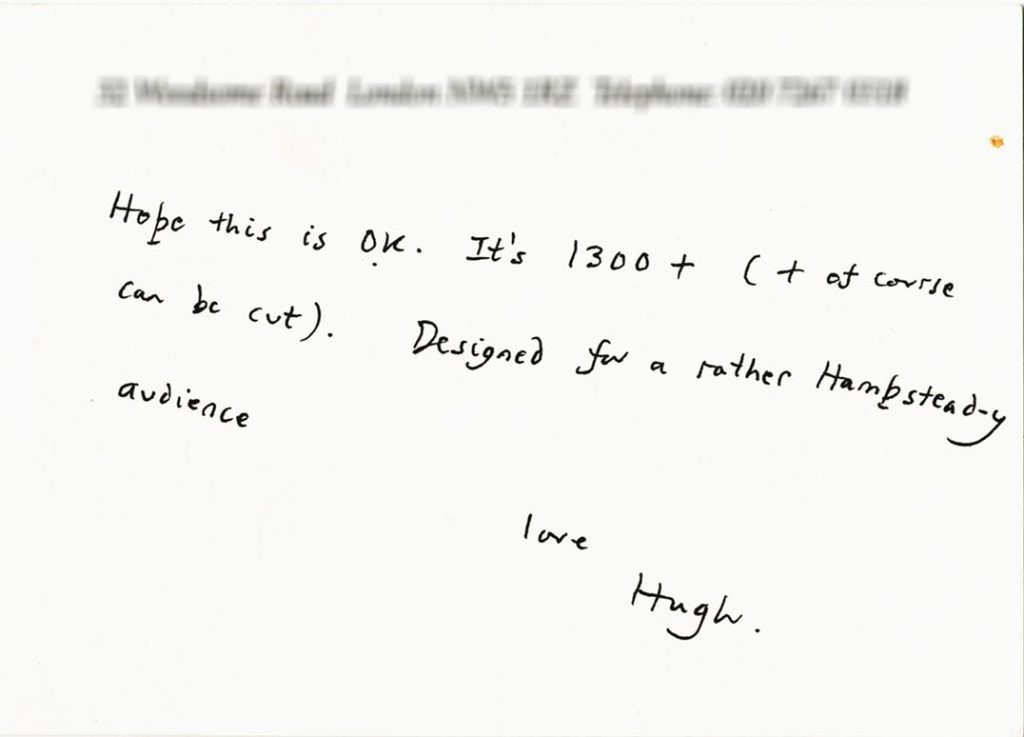 Hope this is OK. It's 1300 + ( + of course
can be cut). Designed for a rather Hampstead-y
audience
love
Hugh.